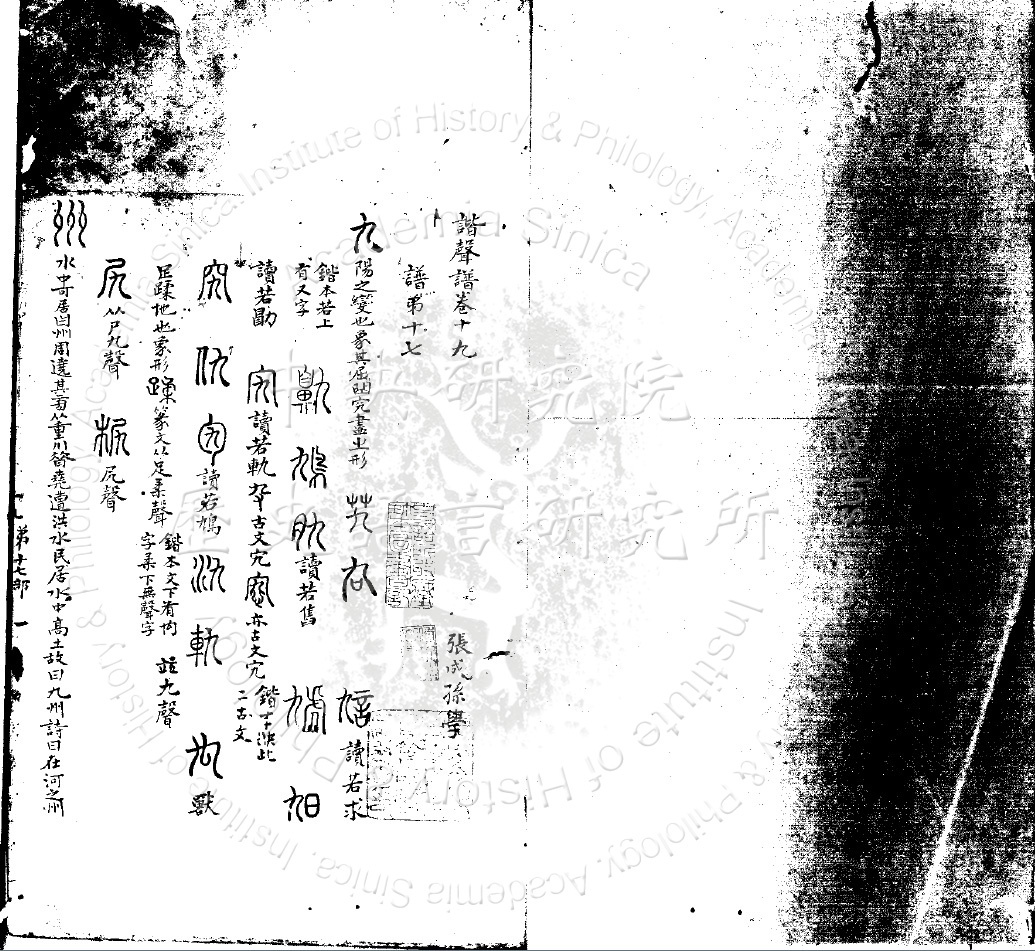 諧聲譜卷十九
張成孫學
譜弟十七
九 陽之變也象其屈曲究盡之形 艽 讀若求
鍇本若上有又字 鼽 鳩 肍 讀若舊 旭
讀若勖 宄 讀若軌 古文宄 亦古文宄 二古文
究 仇 讀若鳩 氿 軌 厹 獸
足蹂地也象形 蹂 篆文从足柔聲 鍇本文下有肉字柔下無聲字 竝九聲
尻 从尸九聲 尻聲
州 水中可居曰州周遶其旁从重川昔堯遭洪水民居水中高土故曰九州詩曰在河之州
弟十七部 一
中央研究院
語言研究所
Institute of History & Philology, Academia Sinica